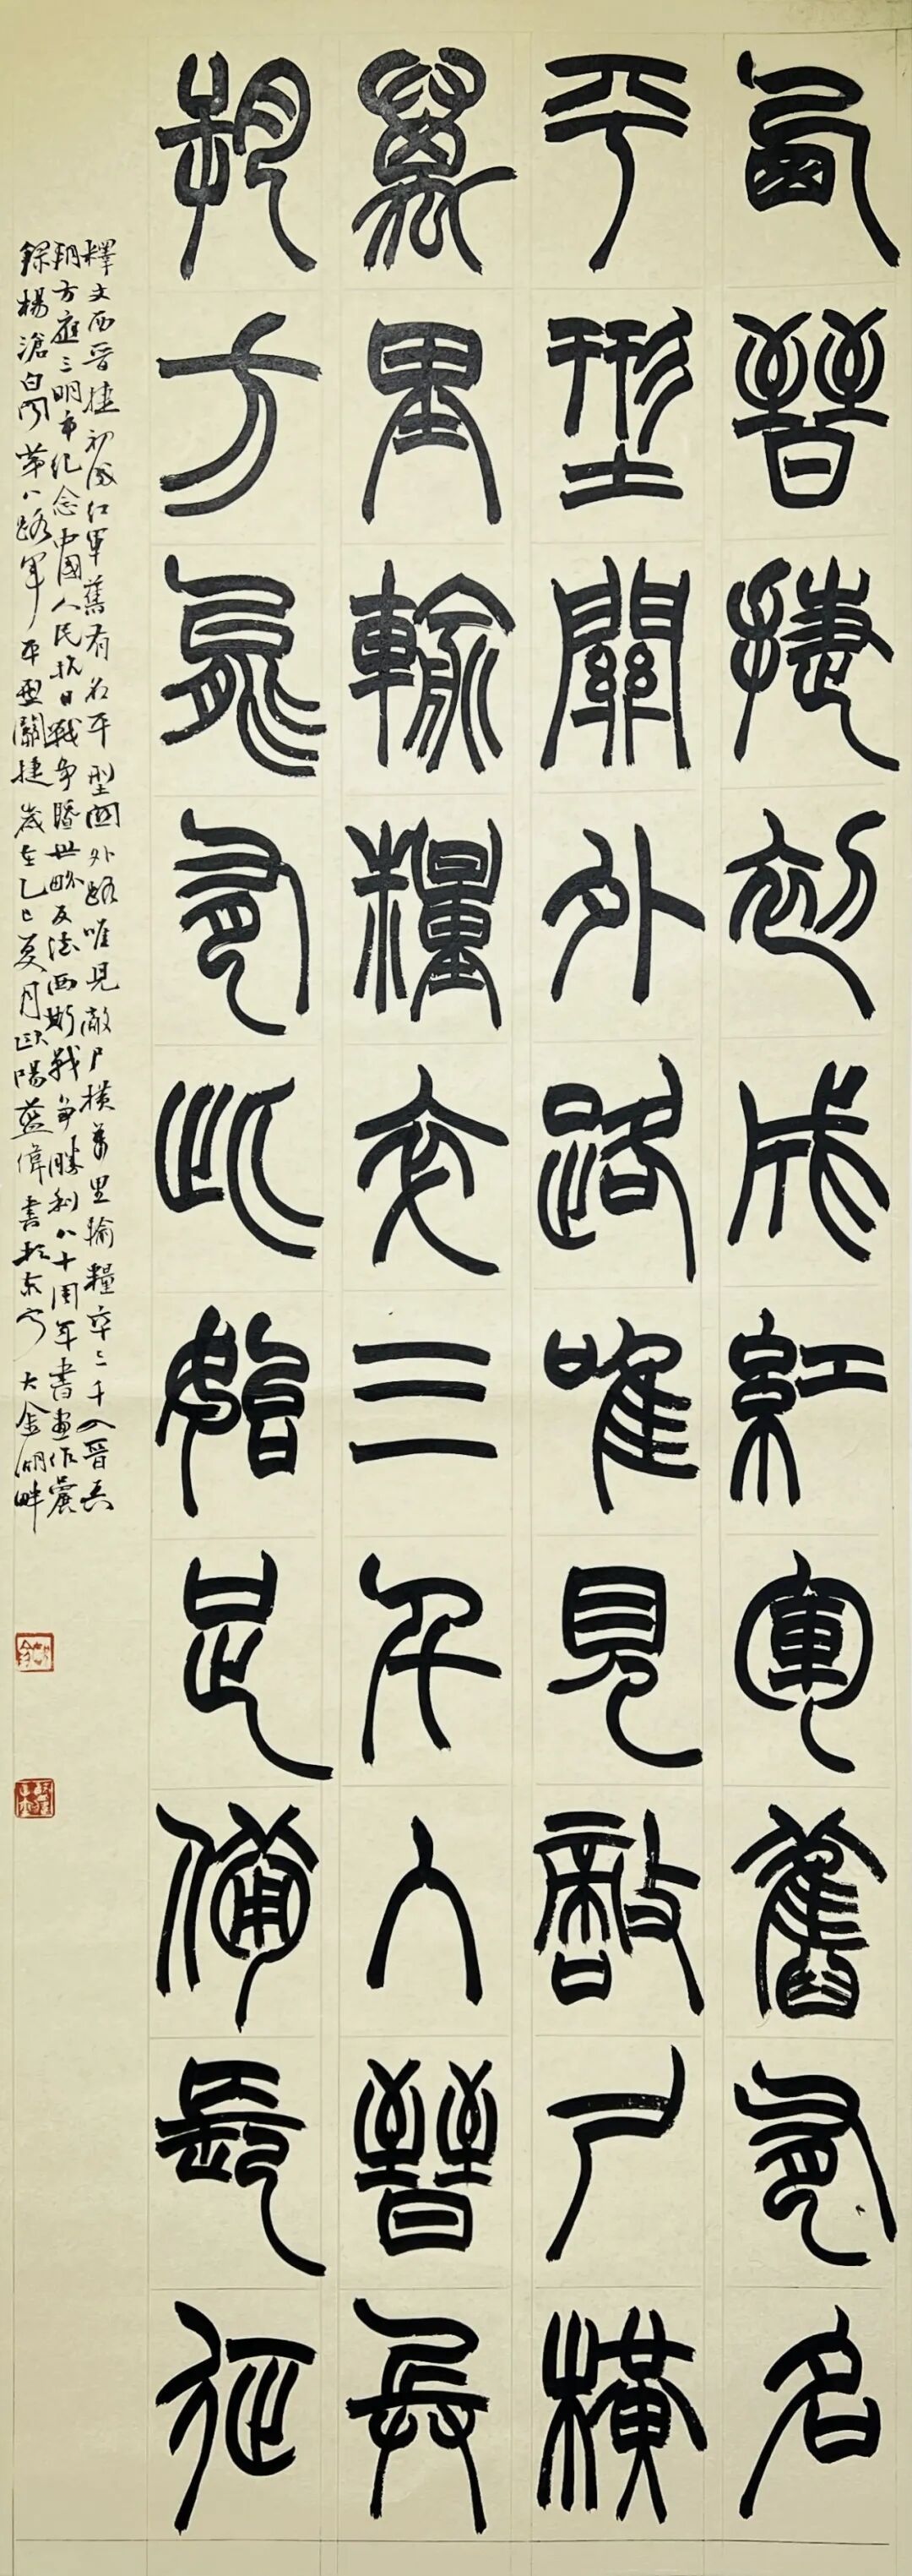 西晉捷初成紅軍舊有名
平型關外路唯見敵尸橫
萬里輸糧卒三千入晉長
朔方有此足備征
釋文西晉捷初成紅軍舊有名平型關外路唯見敵尸橫萬里輸糧卒三千入晉兵
朔方三明市紀念中國人民抗日戰爭暨世界反法西斯戰爭勝利八十周年書畫作展
錄楊滄白聞第八路軍平型關捷歲在乙巳夏月歐陽藍偉書於泰寧大金湖畔